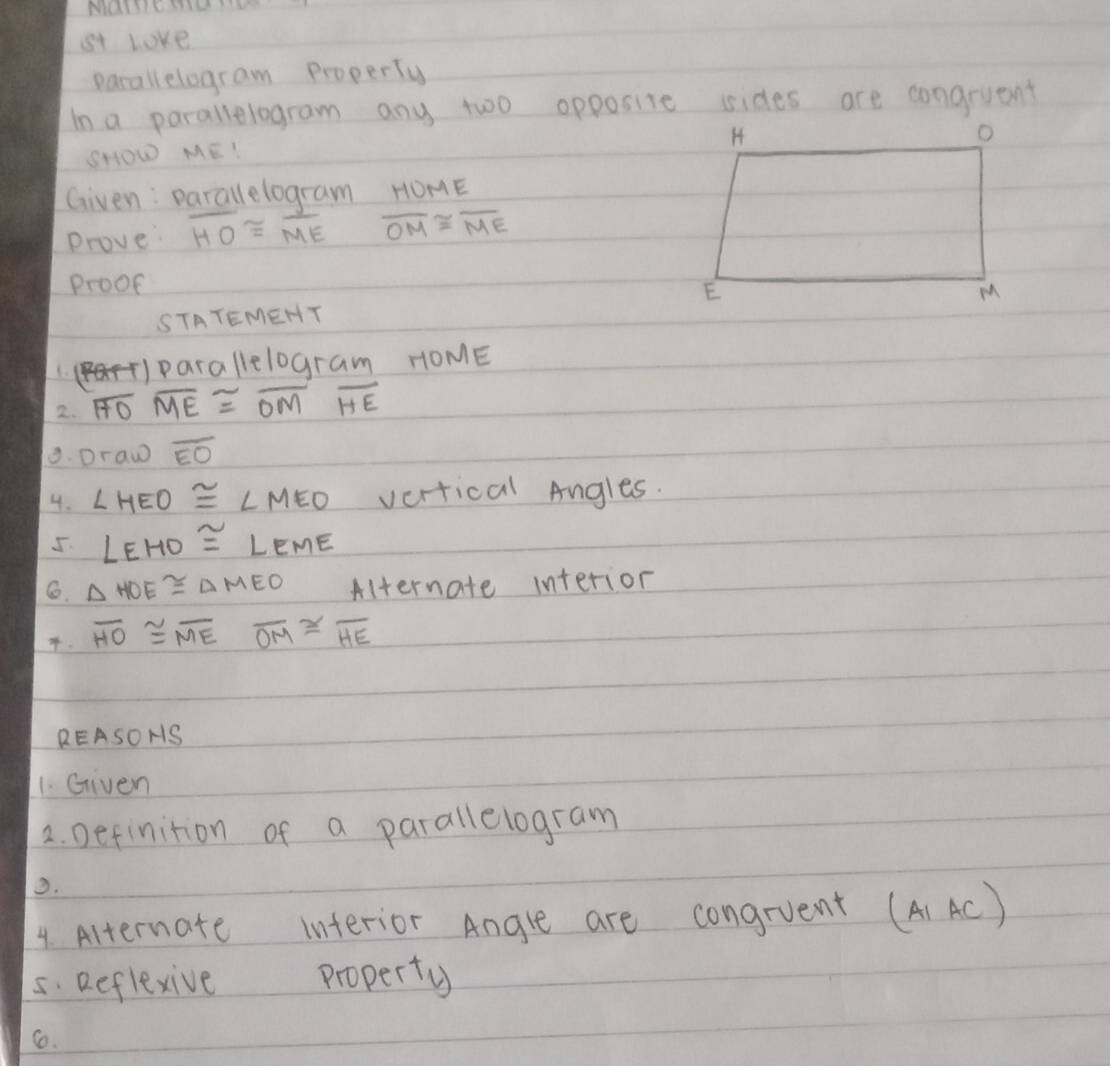 St Luke
Parallelogram Property
In a parallelogram any two opposite sides are congruent
SHOW ME!
H O
Given: parallelogram HOME
Prove: HO ≅ ME OM ≅ ME
Proof
E M
STATEMENT
1. parallelogram HOME
2. HO ME ≅ OM HE
3. Draw EO
4. ∠HEO ≅ ∠MEO vertical Angles.
5. ∠EHO ≅ ∠EME
6. △HOE ≅ △MEO Alternate interior
7. HO ≅ ME OM ≅ HE
REASONS
1. Given
2. Definition of a parallelogram
3.
4. Alternate Interior Angle are congruent (AIAC)
5. Reflexive Property
6.